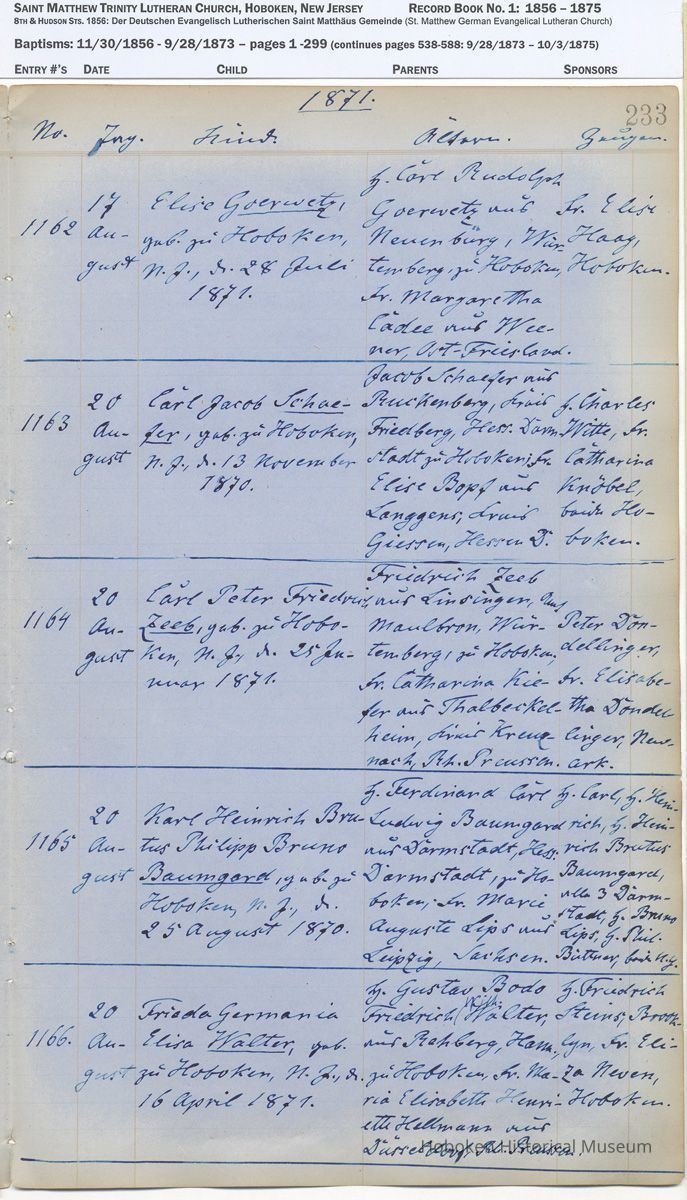 SAINT MATTHEW TRINITY LUTHERAN CHURCH, HOBOKEN, NEW JERSEY RECORD BOOK NO. 1: 1856 – 1875
8TH & HUDSON STS. 1856: Der Deutschen Evangelisch Lutherischen Saint Matthäus Gemeinde (St. Matthew German Evangelical Lutheran Church)
Baptisms: 11/30/1856 - 9/28/1873 – pages 1 -299 (continues pages 538-588: 9/28/1873 – 10/3/1875)
ENTRY #'S DATE CHILD PARENTS SPONSORS
1871.
233
No. Tag. Kind. Ältern. Zeugen.
1162
17
Au-
gust
Elise Goerwetz,
geb. zu Hoboken,
N. J., d. 28 Juli
1871.
H. Carl Rudolph
Goerwetz aus
Neuenbürg, Wür-
temberg, zu Hoboken,
Fr. Margaretha
Cadee aus Wee-
ner, Ost-Friesland.
Fr. Elise
Haag,
Hoboken.
1163
20
Au-
gust
Carl Jacob Schae-
fer, geb. zu Hoboken,
N. J., d. 13 November
1870.
Jacob Schaefer aus
Ruckenberg, Kreis
Friedberg, Hess. Darm-
stadt zu Hoboken; Fr.
Elise Bopf aus
Langgens, Kreis
Giessen, Hessen D.
H. Charles
Witte, Fr.
Catharina
Knöbel,
beide Ho-
boken.
1164
20
Au-
gust
Carl Peter Friedrich
Zeeb, geb. zu Hobo-
ken, N. J., d. 25 Ja-
nuar 1871.
Friedrich Zeeb
aus Linsingen,
Maulbron, Wür-
temberg, zu Hoboken,
Fr. Catharina Kie-
fer aus Thalbeckel-
heim, Kreis Kreuz-
nach, Rh. Preussen.
Peter Don-
dellinger,
Fr. Elisabe-
tha Dondel-
linger, New-
ark.
1165
20
Au-
gust
Karl Heinrich Bru-
tus Philipp Bruno
Baumgard, geb. zu
Hoboken, N. J., d.
25 August 1870.
H. Ferdinand Carl
Ludwig Baumgard
aus Darmstadt, Hess.
Darmstadt, zu Ho-
boken, Fr. Marie
Auguste Lips aus
Leipzig, Sachsen.
H. Carl, H. Hein-
rich, H. Hein-
rich Brutus
Baumgard,
alle 3 Darm-
stadt, H. Bruno
Lips, H. Phil.
Büttner, beide N.Y.
1166.
20
Au-
gust
Frieda Germania
Elisa Walter, geb.
zu Hoboken, N. J., d.
16 April 1871.
H. Gustav Bodo
Friedrich Wilh. Walter,
aus Rehberg, Hann.
zu Hoboken, Fr. Ma-
ria Elisabeth Henri-
ette Hellmann aus
Düsseldorf, Rh. Preussen.
H. Friedrich
Steins, Brook-
lyn, Fr. Eli-
za Neven,
Hoboken.
Hoboken Historical Museum